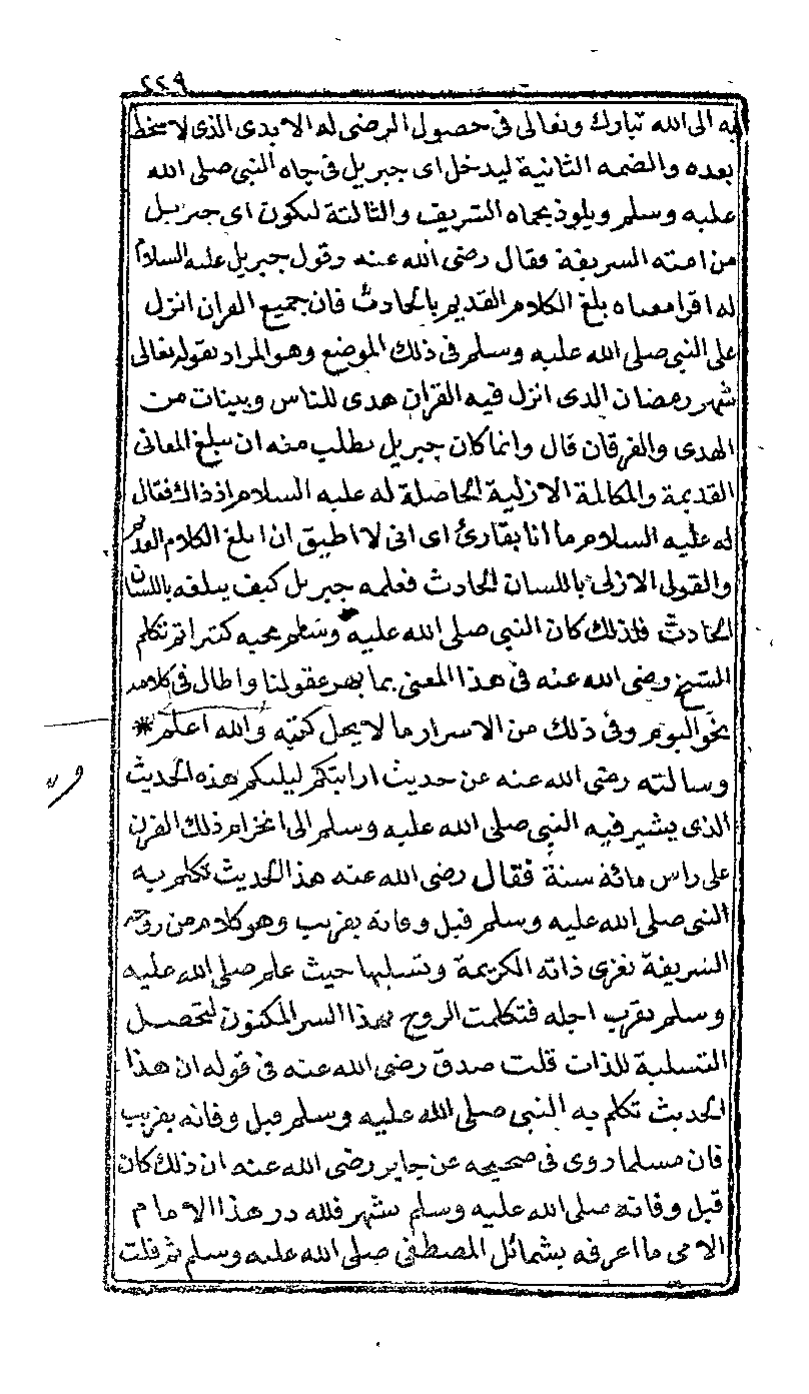 ٢٢٩
به الى الله تبارك وتعالى فى حصول الرضى له الابدى الذى لا سخط
بعده والضمه الثانية ليدخل اى جبريل فى جاه النبى صلى الله
عليه وسلم ويلوذ بجماه الشريف والثالثة ليكون اى جبريل
من امته الشريفة فقال رضى الله عنه وقول جبريل عليه السلام
له اقرا معناه بلغ الكلام القديم بالحادث فان جميع القران انزل
على النبى صلى الله عليه وسلم فى ذلك الموضع وهو المراد بقوله تعالى
شهر رمضان الذى انزل فيه القران هدى للناس وبينات من
الهدى والفرقان قال وانما كان جبريل يطلب منه ان يبلغ المعانى
القديمة والمكالمة الازلية الحاصلة له عليه السلام اذ ذاك فقال
له عليه السلام ما انا بقارئ اى انى لا اطيق ان ابلغ الكلام القديم
والقول الازلى باللسان الحادث فعلمه جبريل كيف يبلغه باللسان
الحادث فلذلك كان النبى صلى الله عليه وسلم يحبه كثيرا ثم تكلم
الشيخ رضى الله عنه فى هذا المعنى بما بهر عقولنا واطال فى كلامه
نحو اليوم وفى ذلك من الاسرار ما لا يحل كتبه والله اعلم *
وسالته رضى الله عنه عن حديث ارايتكم ليلتكم هذه الحديث
الذى يشير فيه النبى صلى الله عليه وسلم الى انخرام ذلك القرن
على راس مائة سنة فقال رضى الله عنه هذا الحديث تكلم به
النبى صلى الله عليه وسلم قبل وفاته بقريب وهو كلام من روحه
الشريفة تعزى ذاته الكريمة وتسليها حيث علم صلى الله عليه
وسلم بقرب اجله فتكلمت الروح بهذا السر المكنون لتحصل
التسلية للذات قلت صدق رضى الله عنه فى قوله ان هذا
الحديث تكلم به النبى صلى الله عليه وسلم قبل وفاته بقريب
فان مسلما روى فى صحيحه عن جابر رضى الله عنه ان ذلك كان
قبل وفاته صلى الله عليه وسلم بشهر فلله در هذا الامام
الامى ما اعرفه بشمائل المصطفى صلى الله عليه وسلم ثم قلت